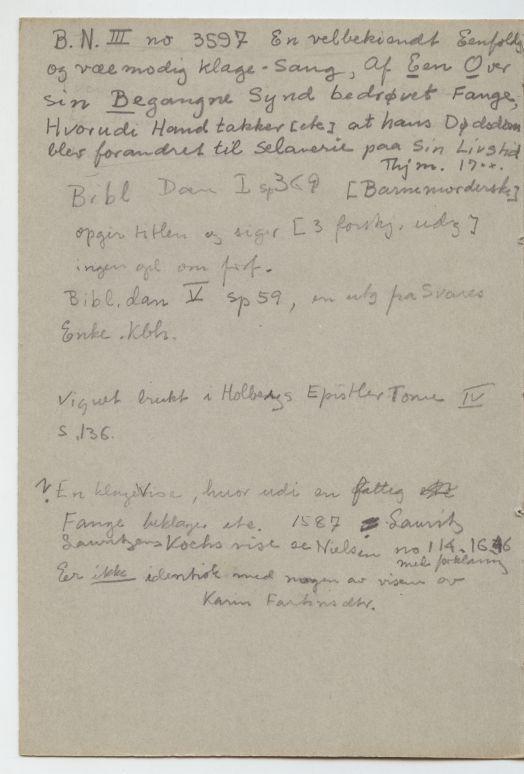 B.N. III no 3597 En velbekiendt Eenfoldig
og væemodig Klage-Sang, Af Een Over
sin Begangne Synd bedrøvet Fange,
Hvorudi Hand takker [etc] at hans Dødsdom
blev forandret til Selaverie paa Sin Livstid
Thj m. 17**.
Bibl Dan I sp 369 [Barnemorderske]
opgir titlen og siger [3 forskj. udg]
ingen opl om forf.
Bibl. dan V sp 59, en utg fra Svares
Enke. Kbh.
Vignet brukt i Holbergs Epistler Tome IV
s. 136.
? En klagevise, huor udi en fattig
Fange beklager etc. 1587 Lauritz
Lauritzens Kochs vise se Nielsen no 114.
med forklaring
Er ikke identisk med nogen av visene av
Karin